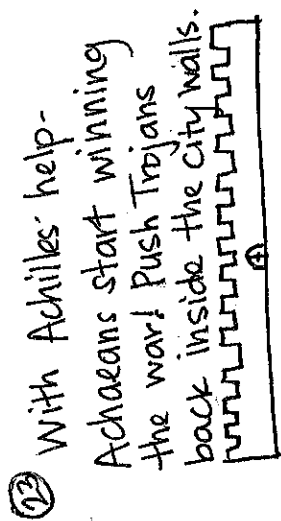 23 With Achilles' help-
Achaeans start winning
the war! Push Trojans
back inside the city walls.